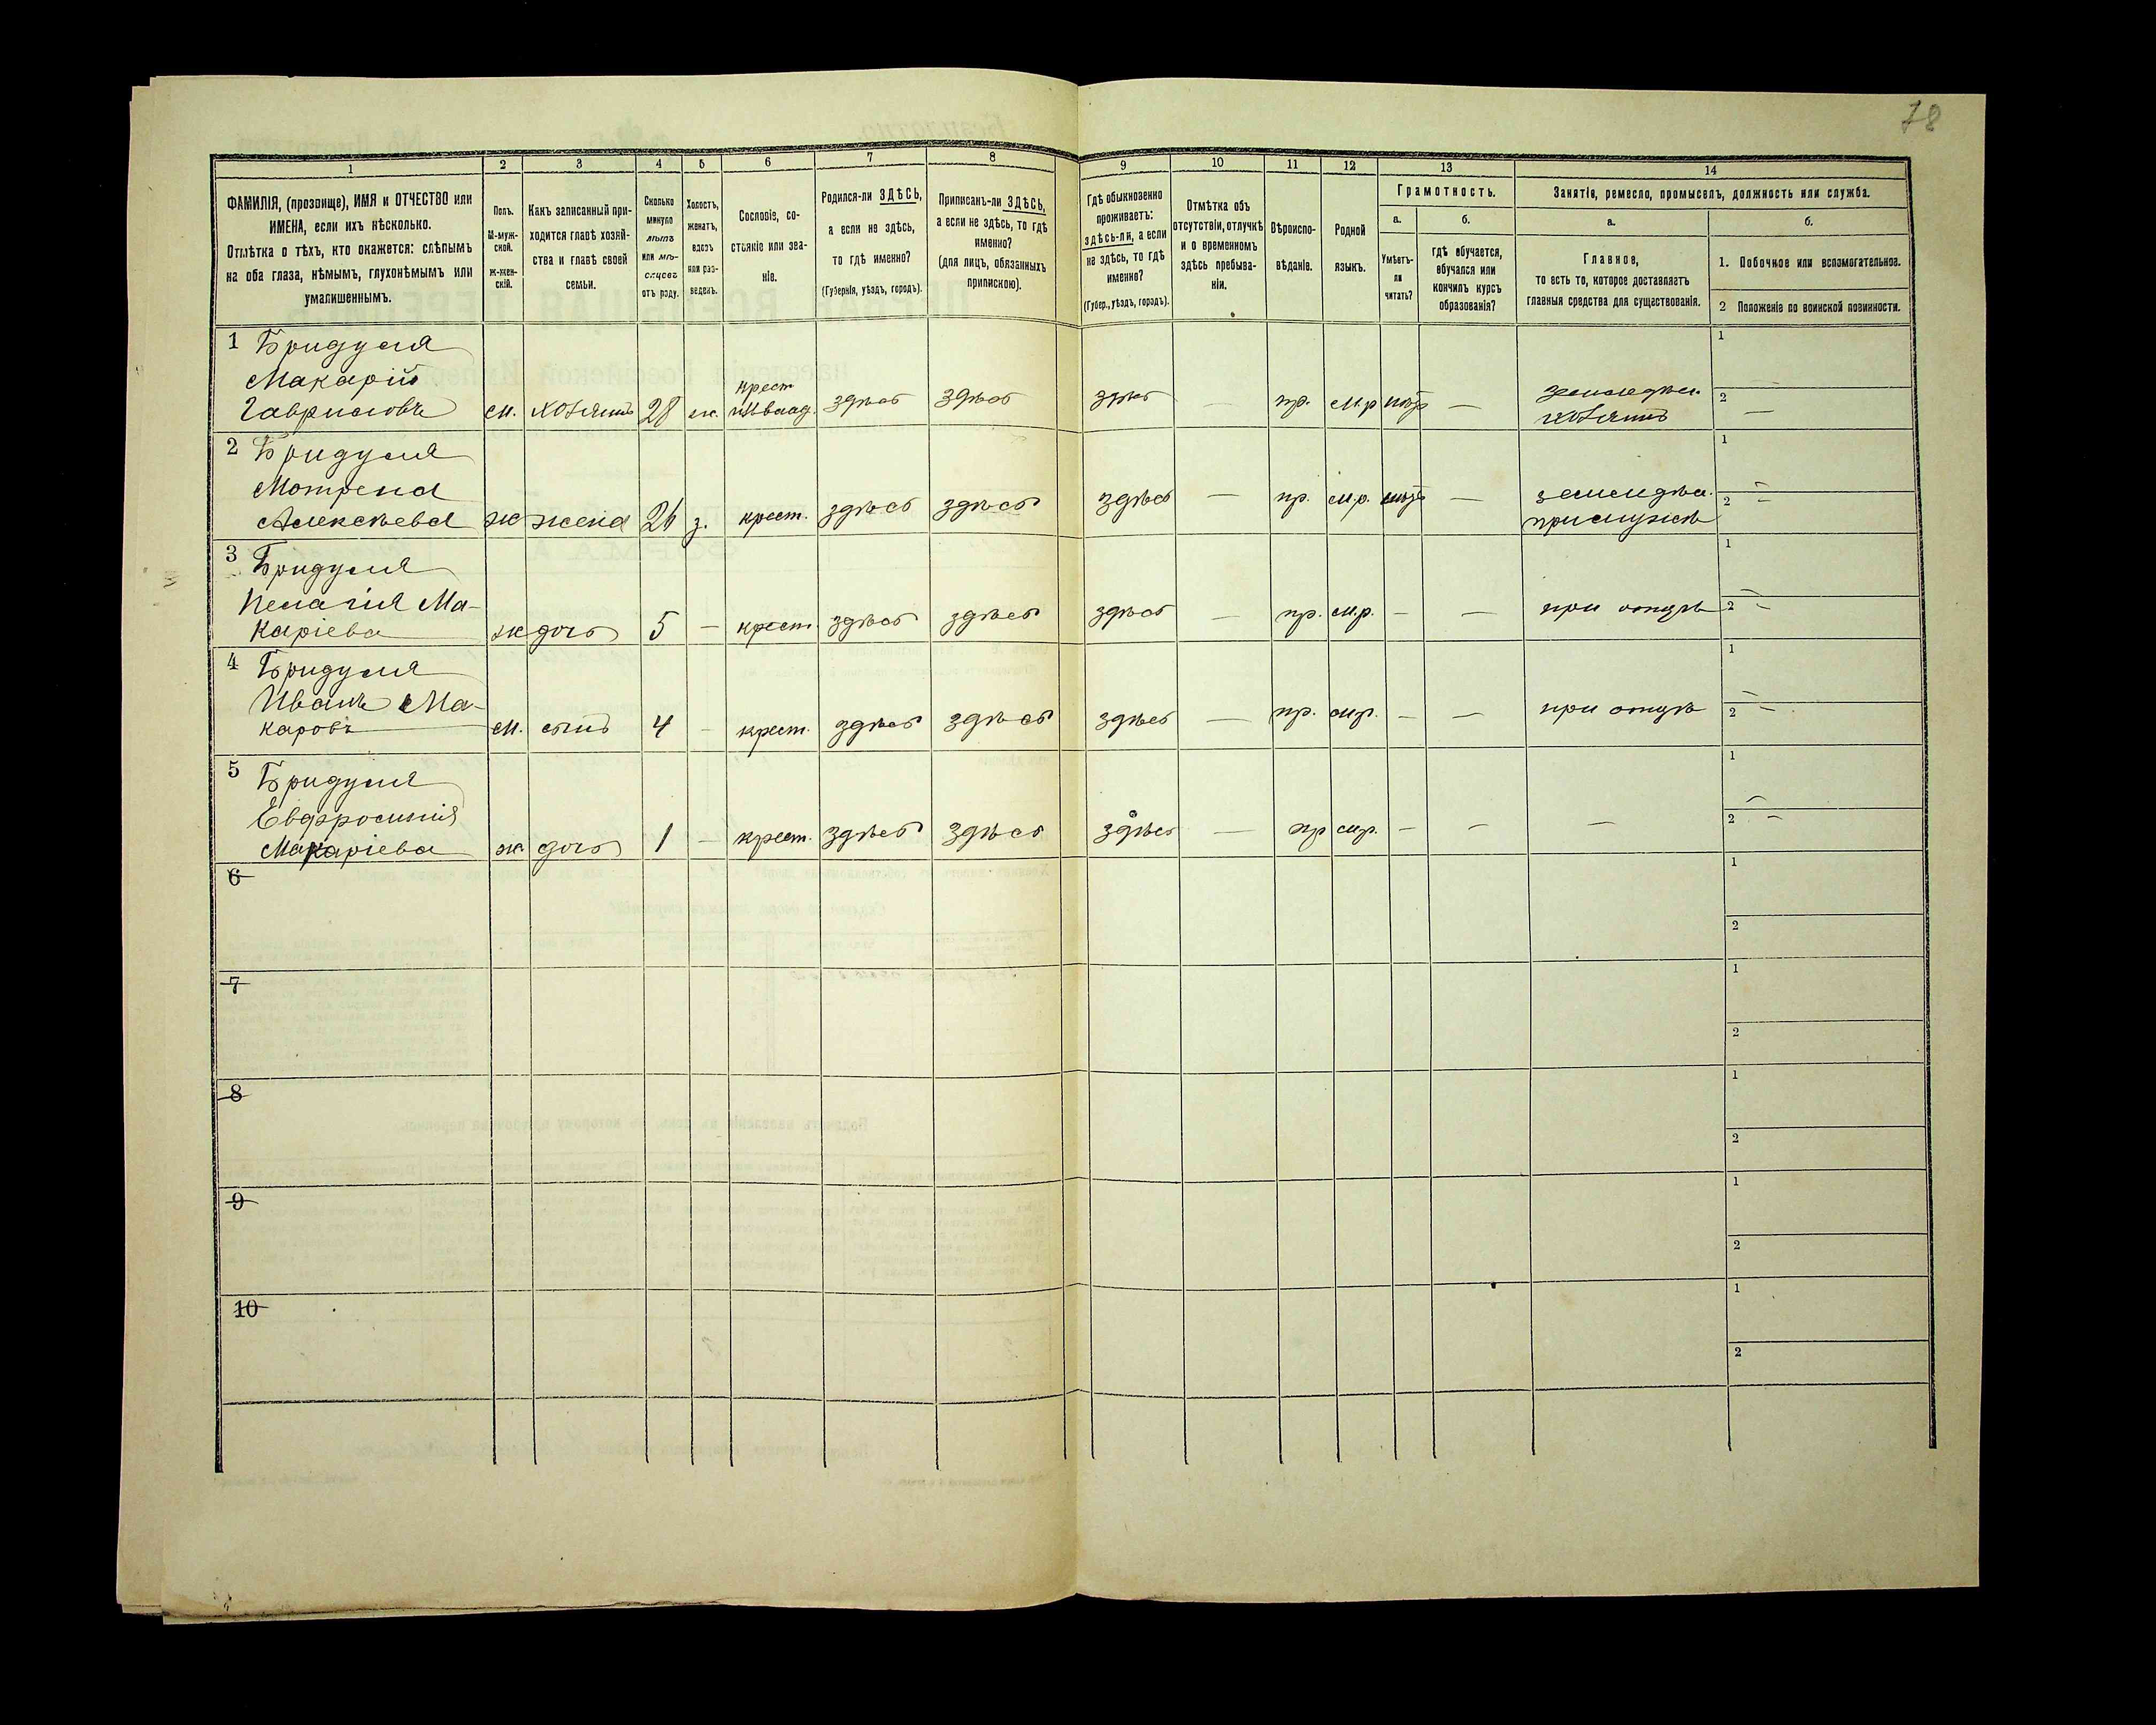 78
1 2 3 4 5 6 7 8 9 10 11 12 13 14
ФАМИЛІЯ, (прозвище), ИМЯ и ОТЧЕСТВО или
ИМЕНА, если ихъ нѣсколько.
Отмѣтка о тѣхъ, кто окажется: слѣпымъ
на оба глаза, нѣмымъ, глухонѣмымъ или
умалишеннымъ.
Полъ.
М-муж-
ской.
ж-жен-
скій.
Какъ записанный при-
ходится главѣ хозяй-
ства и главѣ своей
семьи.
Сколько
минуло
лѣтъ
или мѣ-
сяцевъ
отъ роду.
Холостъ,
женатъ,
вдовъ
или раз-
веденъ.
Сословіе, со-
стояніе или зва-
ніе.
Родился-ли ЗДѢСЬ,
а если не здѣсь,
то гдѣ именно?
(Губернія, уѣздъ, городъ).
Приписанъ-ли ЗДѢСЬ,
а если не здѣсь, то гдѣ
именно?
(для лицъ, обязанныхъ
припискою).
Гдѣ обыкновенно
проживаетъ:
здѣсь-ли, а если
не здѣсь, то гдѣ
именно?
(Губер., уѣздъ, городъ).
Отмѣтка объ
отсутствіи, отлучкѣ
и о временномъ
здѣсь пребыва-
ніи.
Вѣроиспо-
вѣданіе.
Родной
языкъ.
Грамотность.
а.
Умѣетъ-
ли
читать?
б.
гдѣ обучается,
обучался или
кончилъ курсъ
образованія?
Занятія, ремесло, промыселъ, должность или служба.
а.
Главное,
то есть то, которое доставляетъ
главныя средства для существованія.
б.
1. Побочное или вспомогательное.
2 Положеніе по воинской повинности.
1 Бридуля
Макарій
Гавриловъ м. хозяинъ 28 ж. крест. здѣсь здѣсь здѣсь — пр. м.р — земледѣл.
хозяинъ 1 — 2 —
2 Бридуля
Мотрена
Алексѣева ж жена 26 з. крест. здѣсь здѣсь здѣсь — пр. м.р. — земледѣл.
при мужѣ 1 — 2 —
3 Бридуля
Пелагія Ма-
каріева ж дочь 5 — крест. здѣсь здѣсь здѣсь — пр. м.р. — — при отцѣ 1 — 2 —
4 Бридуля
Иванъ Ма-
каровъ м. сынъ 4 — крест. здѣсь здѣсь здѣсь — пр. м.р. — — при отцѣ 1 — 2 —
5 Бридуля
Евфросинія
Макаріева ж. дочь 1 — крест. здѣсь здѣсь здѣсь — пр м.р. — — — 1 — 2 —
6 1 2
7 1 2
8 1 2
9 1 2
10 1 2